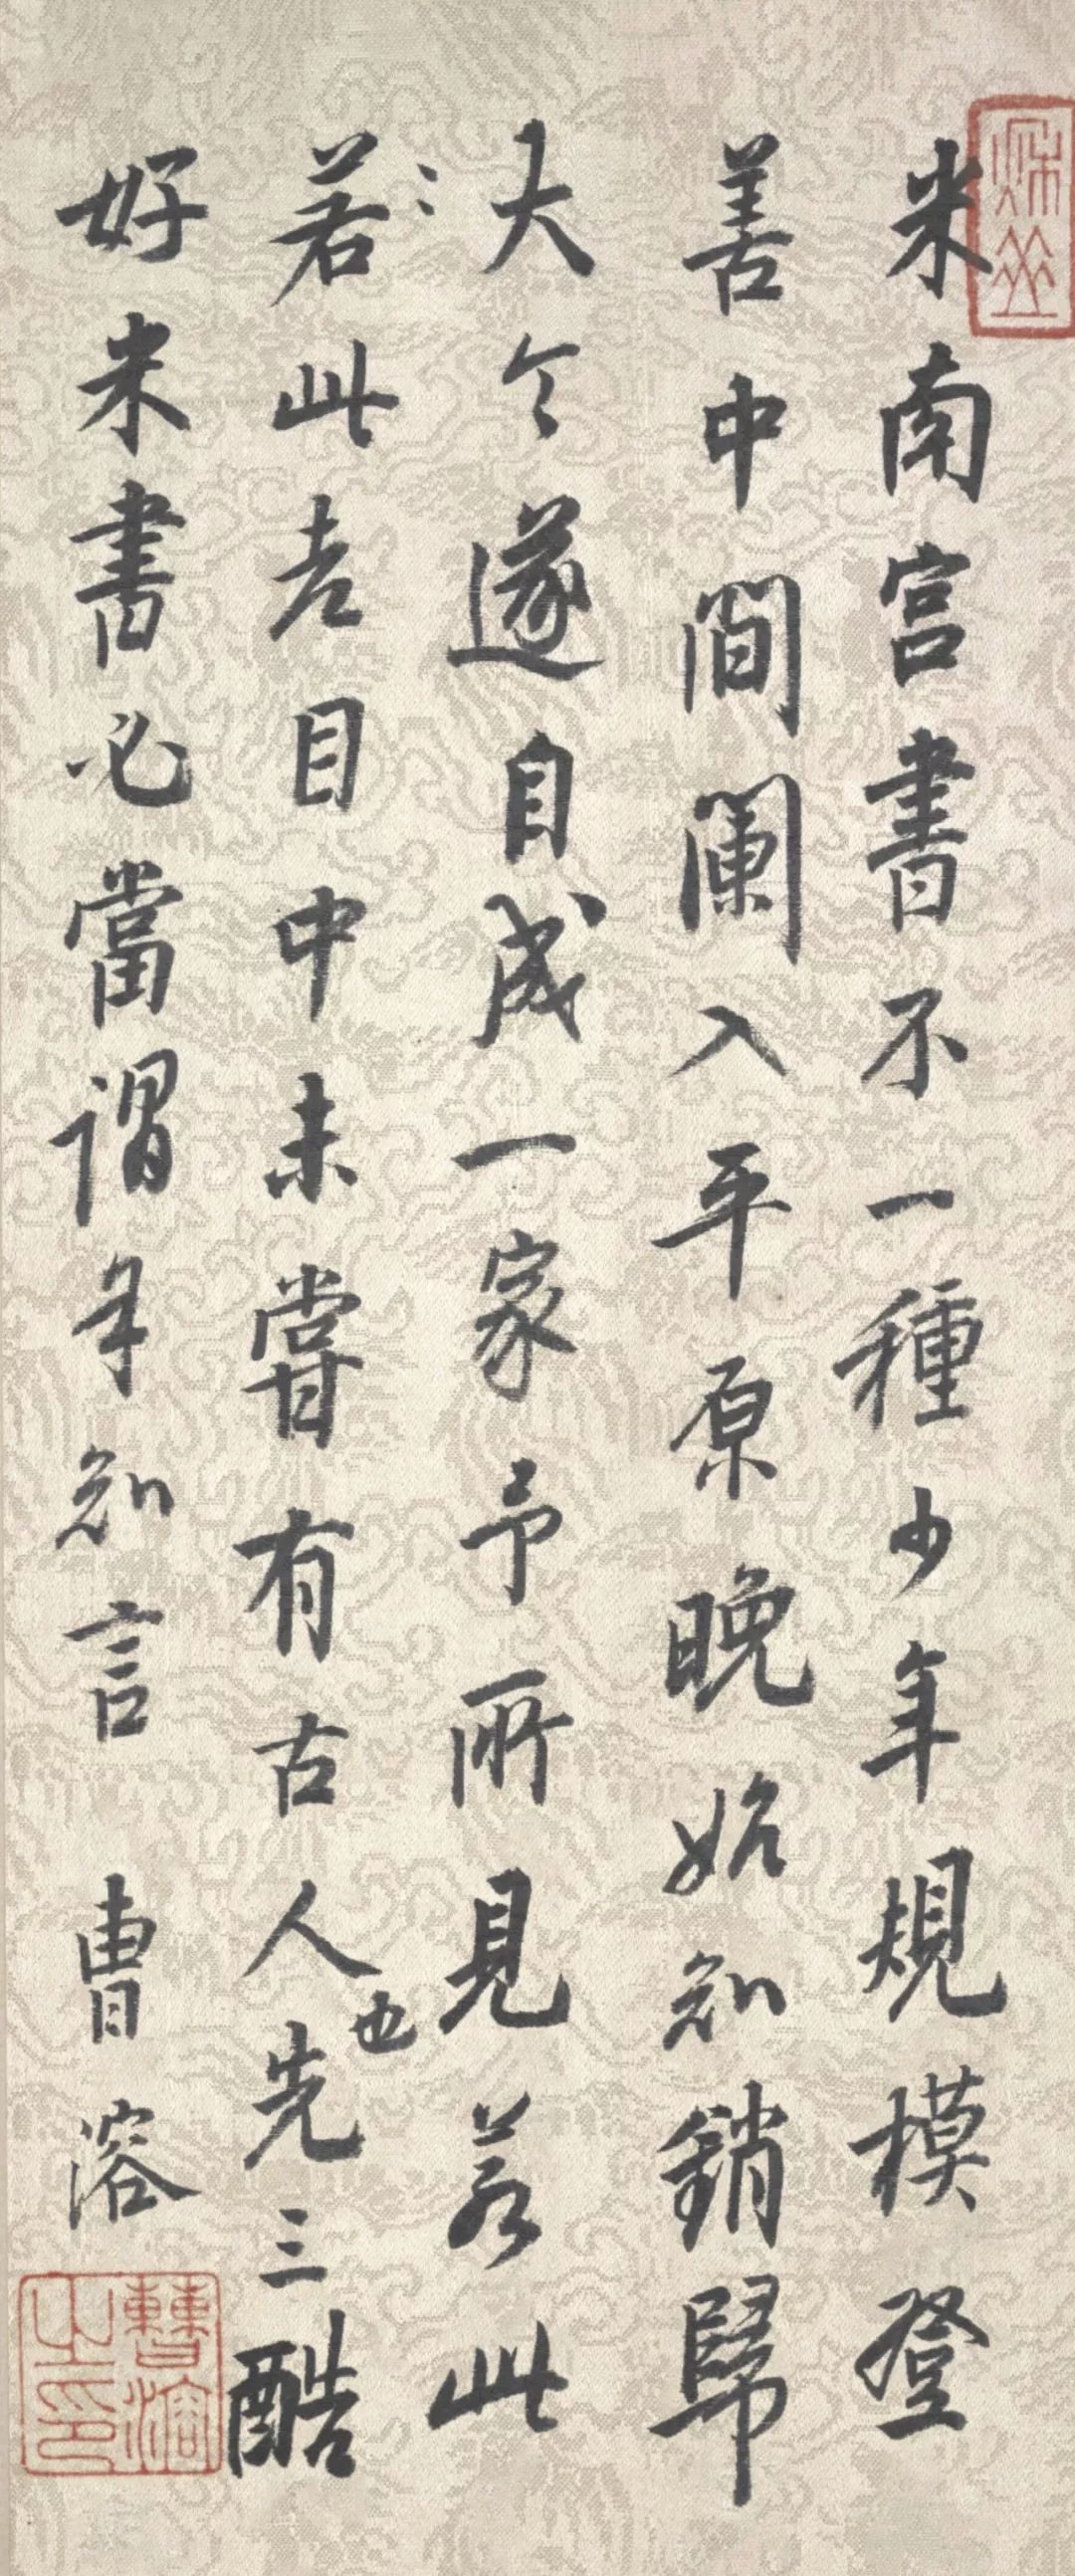 秋岳
米南宫書不一種少年規模登
善中間闌入平原晚始知銷歸
大令遂自成一家予所見若此
若此老目中未嘗有古人也先三酷
好米書必當謂年知言 曹溶
曹溶之印